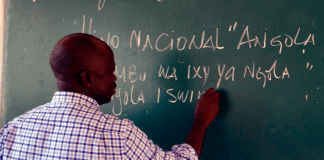 Hino NACIONAL "ANGOLA
MBU WA IXY YA NGOLA"
gola I SWI